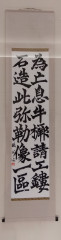 為亡息牛橛請工鏤
石造此弥勒像一區